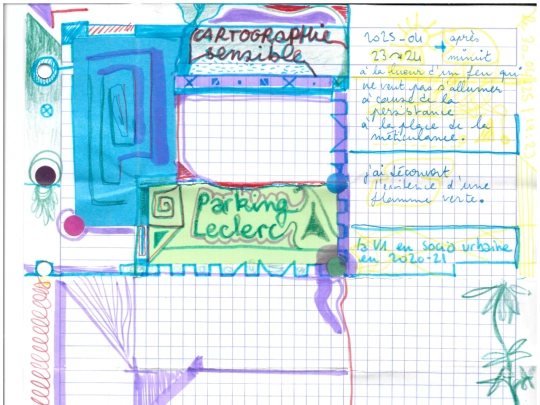 CARTOGRAPHie
sensible
2025-04 après
23 24 minuit
à la lueur d'un feu qui
ne veut pas s'allumer
à cause de la
persistance
à la place de la
méticulance.
j'ai découvert
l'existence d'une
flamme verte.
Parking
Leclerc
la V1 en socio urbaine
en 2020-21